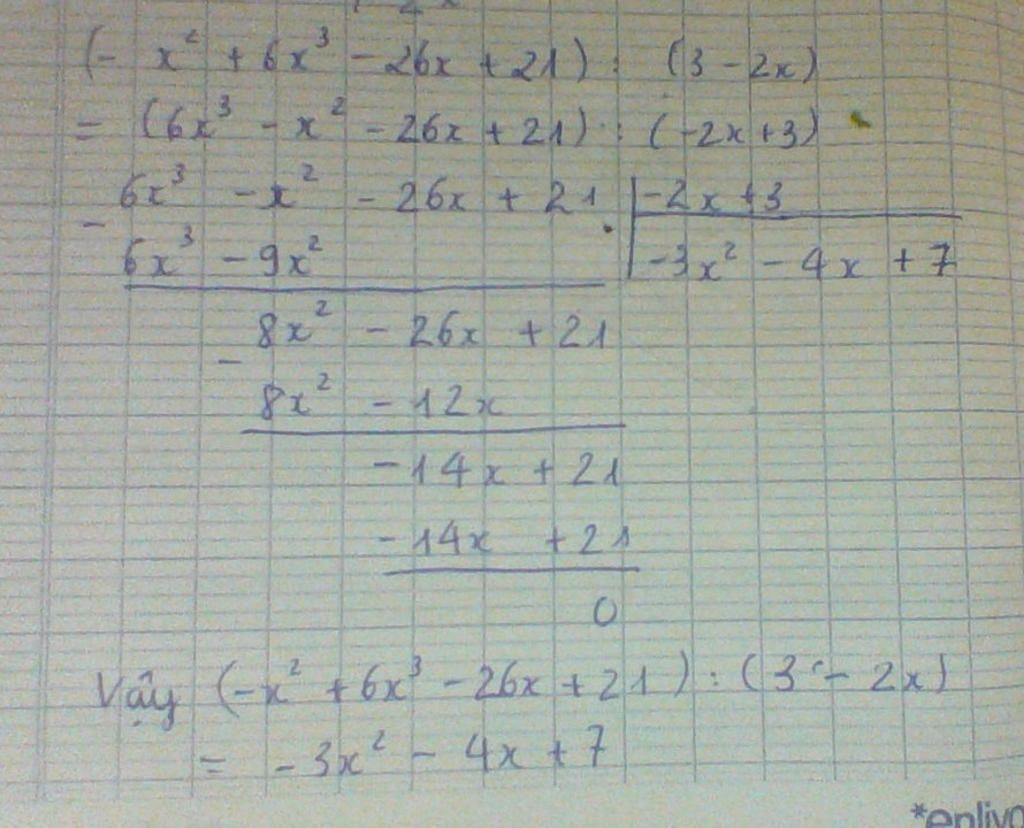 (- x² + 6x³ - 26x + 21) : (3 - 2x)
= (6x³ - x² - 26x + 21) : (-2x + 3)
- 6x³ - x² - 26x + 21 | -2x + 3
6x³ - 9x² | -3x² - 4x + 7
- 8x² - 26x + 21
8x² - 12x
-14x + 21
-14x + 21
0
Vậy (-x² + 6x³ - 26x + 21) : (3 - 2x)
= -3x² - 4x + 7